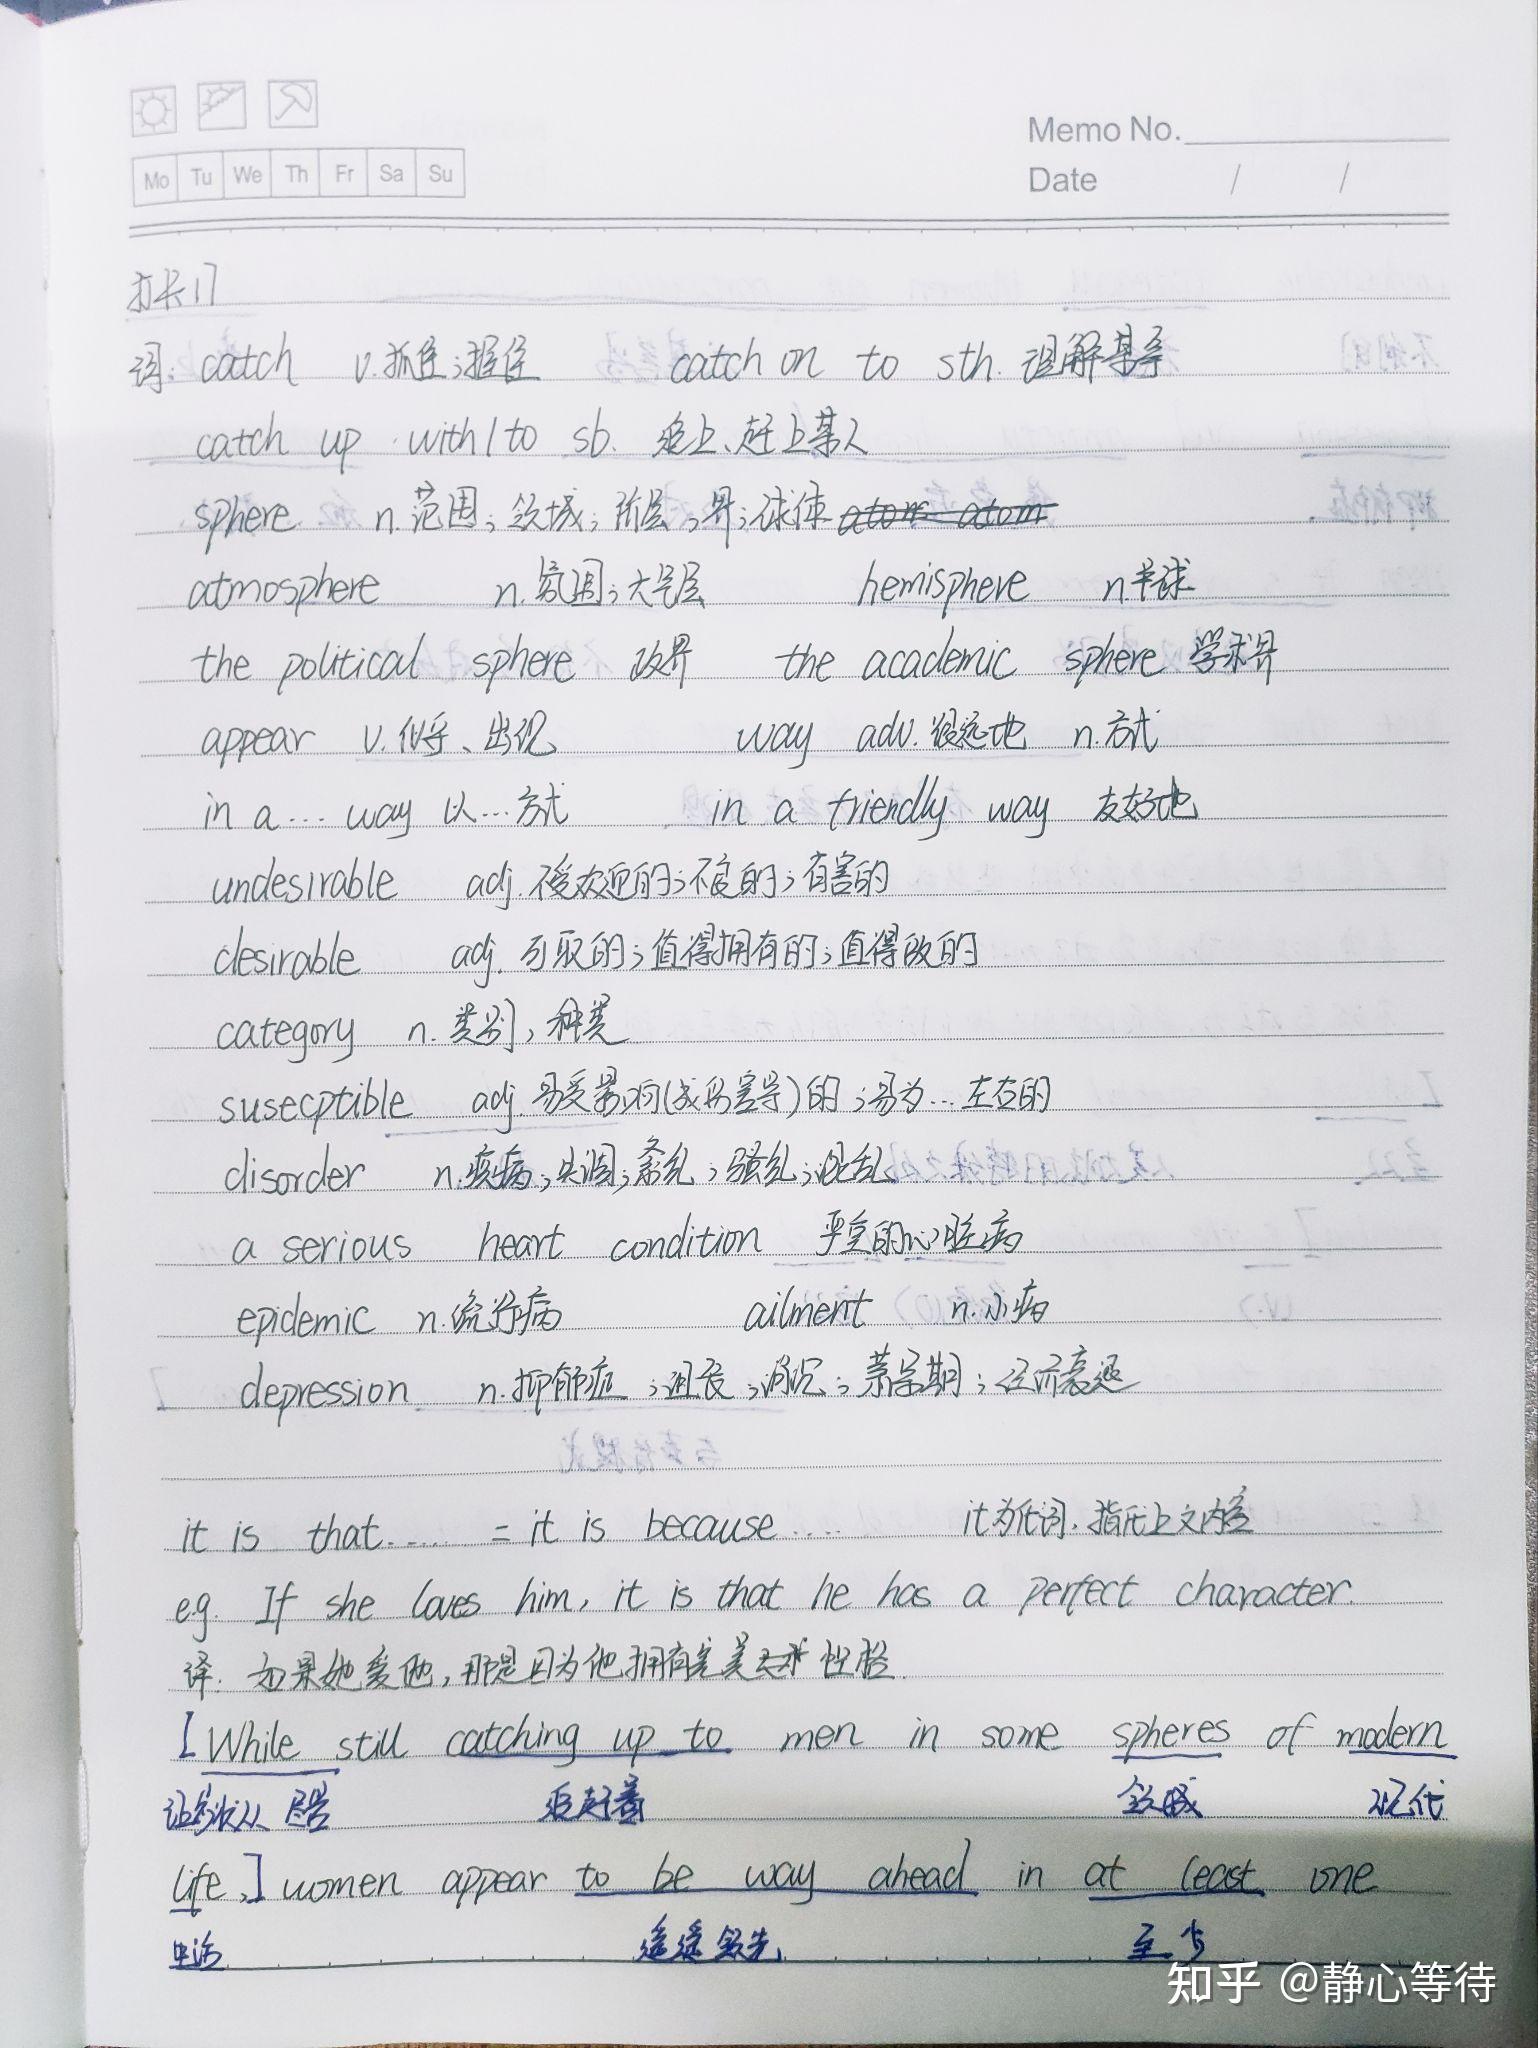 Memo No.
Mo Tu We Th Fr Sa Su
Date / /
长17
词: catch v.抓住;握住 catch on to sth. 理解某事
catch up with/to sb. 追上、赶上某人
sphere n.范围;领域;阶层;界;球体
atmosphere n.氛围;大气层 hemisphere n.半球
the political sphere 政界 the academic sphere 学术界
appear v.似乎、出现 way adv.很远地 n.方式
in a... way 以...方式 in a friendly way 友好地
undesirable adj.不受欢迎的;不良的;有害的
desirable adj.可取的;值得拥有的;值得做的
category n.类别;种类
susecptible adj.易受影响(或伤害等)的;易为...左右的
disorder n.疾病;失调;紊乱;骚乱;混乱
a serious heart condition 严重的心脏病
epidemic n.流行病 ailment n.小病
depression n.抑郁症;沮丧;消沉;萧条期;经济衰退
it is that...... = it is because..... it为代词,指代上文内容
e.g. If she loves him, it is that he has a perfect character.
译. 如果她爱他,那是因为他拥有完美性格.
[While still catching up to men in some spheres of modern
让步状从 尽管 追赶着 领域 现代
life,] women appear to be way ahead in at least one
生活 遥遥领先 至少
知乎 @静心等待